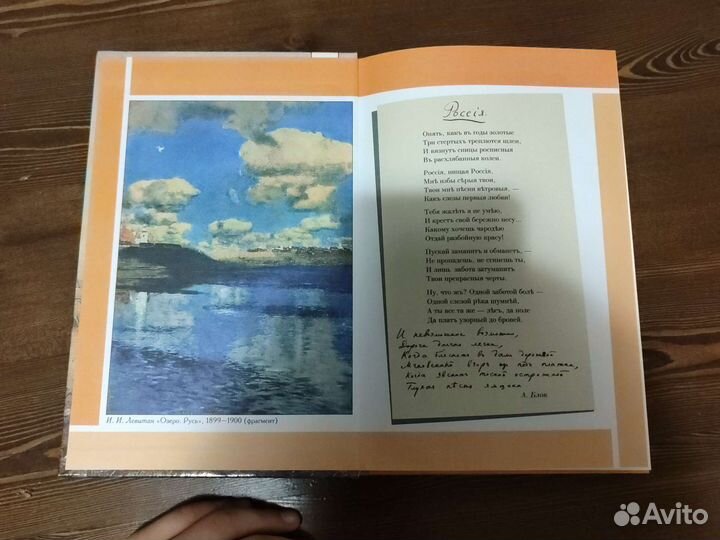 И. И. Левитан «Озеро. Русь», 1899—1900 (фрагмент)
Россія.
Опять, какъ въ годы золотые
Три стертыхъ треплются шлеи,
И вязнутъ спицы росписныя
Въ расхлябанныя колеи.
Россія, нищая Россія,
Мнѣ избы сѣрыя твои,
Твои мнѣ пѣсни вѣтровыя, —
Какъ слезы первыя любви!
Тебя жалѣть я не умѣю,
И крестъ свой бережно несу...
Какому хочешь чародѣю
Отдай разбойную красу!
Пускай заманитъ и обманетъ, —
Не пропадешь, не сгинешь ты,
И лишь забота затуманитъ
Твои прекрасныя черты.
Ну, что жъ? Одной заботой болѣ —
Одной слезой рѣка шумнѣй,
А ты все та же — лѣсъ, да поле
Да платъ узорный до бровей.
И невозможное возможно,
Дорога долгая легка,
Когда блеснетъ въ дали дорожной
Мгновенный взоръ изъ подъ платка,
Когда звенитъ тоской острожной
Глухая пѣсня ямщика
А. Блок
Avito